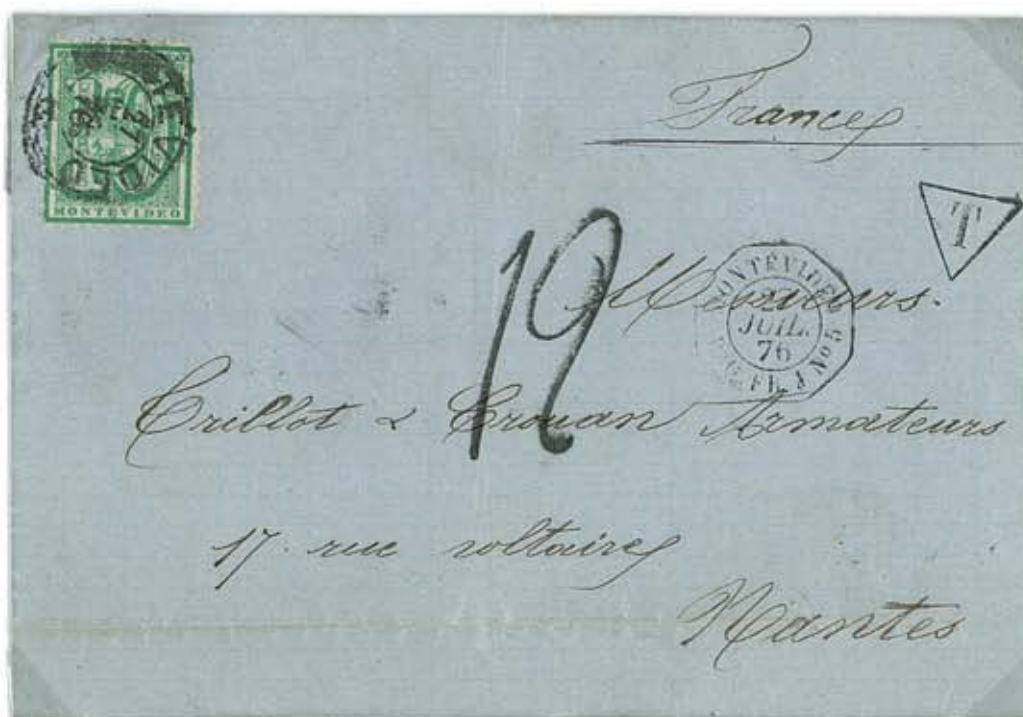 France
T
MONTEVIDEO
12
Messieurs.
MONTÉVIDEO
JUIL.
76
PAQ. FR. J No 5
Crillot & Crouan Armateurs
17. rue voltaire
Nantes